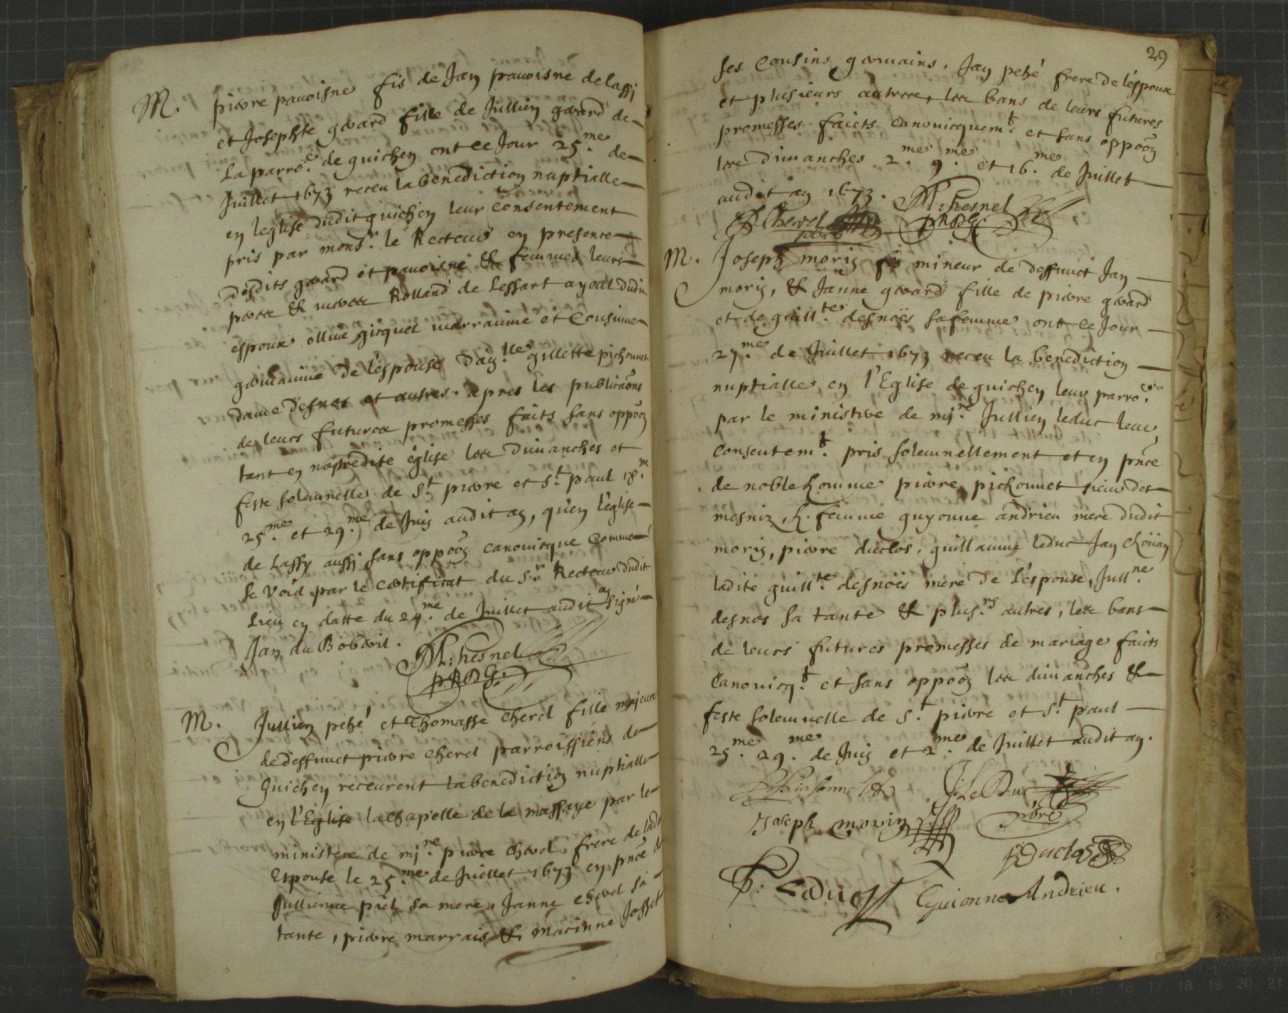 M. pierre pavoisne fis de Jan pavoisne de lassi
et Josephte gerard fille de Jullien gerard de
La parrse de guichen ont ce Jour 25.me de
Juillet 1673 receu la benediction nuptialle
en leglise dudit guichen leur consentement
pris par monsr le Recteur en presence
desdits gerard et pavoisne & femmes leurs
peres & meres Rolland de Lessart ayeul dudit
espoux ollive gicquel marraine et Cousine
germaine de l'espouse dam.lle gillette pichonnet
dame et autres. apres les publicaons
de leurs futures promesses faits sans oppoon
tant en nostredite église les dimanches et
feste solemnelle de St pierre et St paul 18.me
25.me et 29.me de Juin audit an, qu'en l'église
de Lassy aussi sans oppoon canonicque comme
se void par le certificat du Sr Recteur dudit
Lieu en datte du 24.me de Juillet audit an signé
Jan du Boberil.
M: hesnel
M. Jullien pehé et Thomasse cherel fille majeure
de deffunct pierre cherel parroissiens de
guichen receurent la benediction nuptialle
en l'Eglise la chapelle de la massaye par le
ministere de mi.re pierre cherel frere de ladite
Espouse le 25.me de Juillet 1673 en pnce de
Jullienne sa mere, Janne cherel sa
tante, pierre marrais & macinne Josset
29
ses cousins germains. Jan pehé frere de l'espoux
et plusieurs autres, les bans de leurs futures
promesses faits canonicquemt et sans oppoon
les dimanches 2.me 9.me et 16.me de Juillet
audit an 1673.
P Cherel M: hesnel
M. Joseph morin fis mineur de deffunct Jan
morin, & Janne gerard fille de pierre gerard
et de guill.te desnoës sa femme ont ce Jour
27.me de Juillet 1673 receu la benediction
nuptialle en l'Eglise de guichen leur parrose
par le ministere de mi.re Jullien leduc leur
consentemt pris solemnellement et en pnce
de noble homme pierre pichonnet sieur des
mesniz, h. femme guyonne andrieu mere dudit
morin, pierre duclos, guillaume leduc Jan
ladite guill.te desnoës mere de L'espouse, Jull.ne
desnos sa tante & plus.rs autres, les bans
de leurs futures promesses de mariage faits
canonicqt et sans oppoon les dimanches &
feste solemnelle de St pierre et St paul
25.me 29.me de Juin et 2.me de Juillet audit an.
J: Le Duc
Joseph morin
P Duclos
G: Leduc Guionne Andrieu.